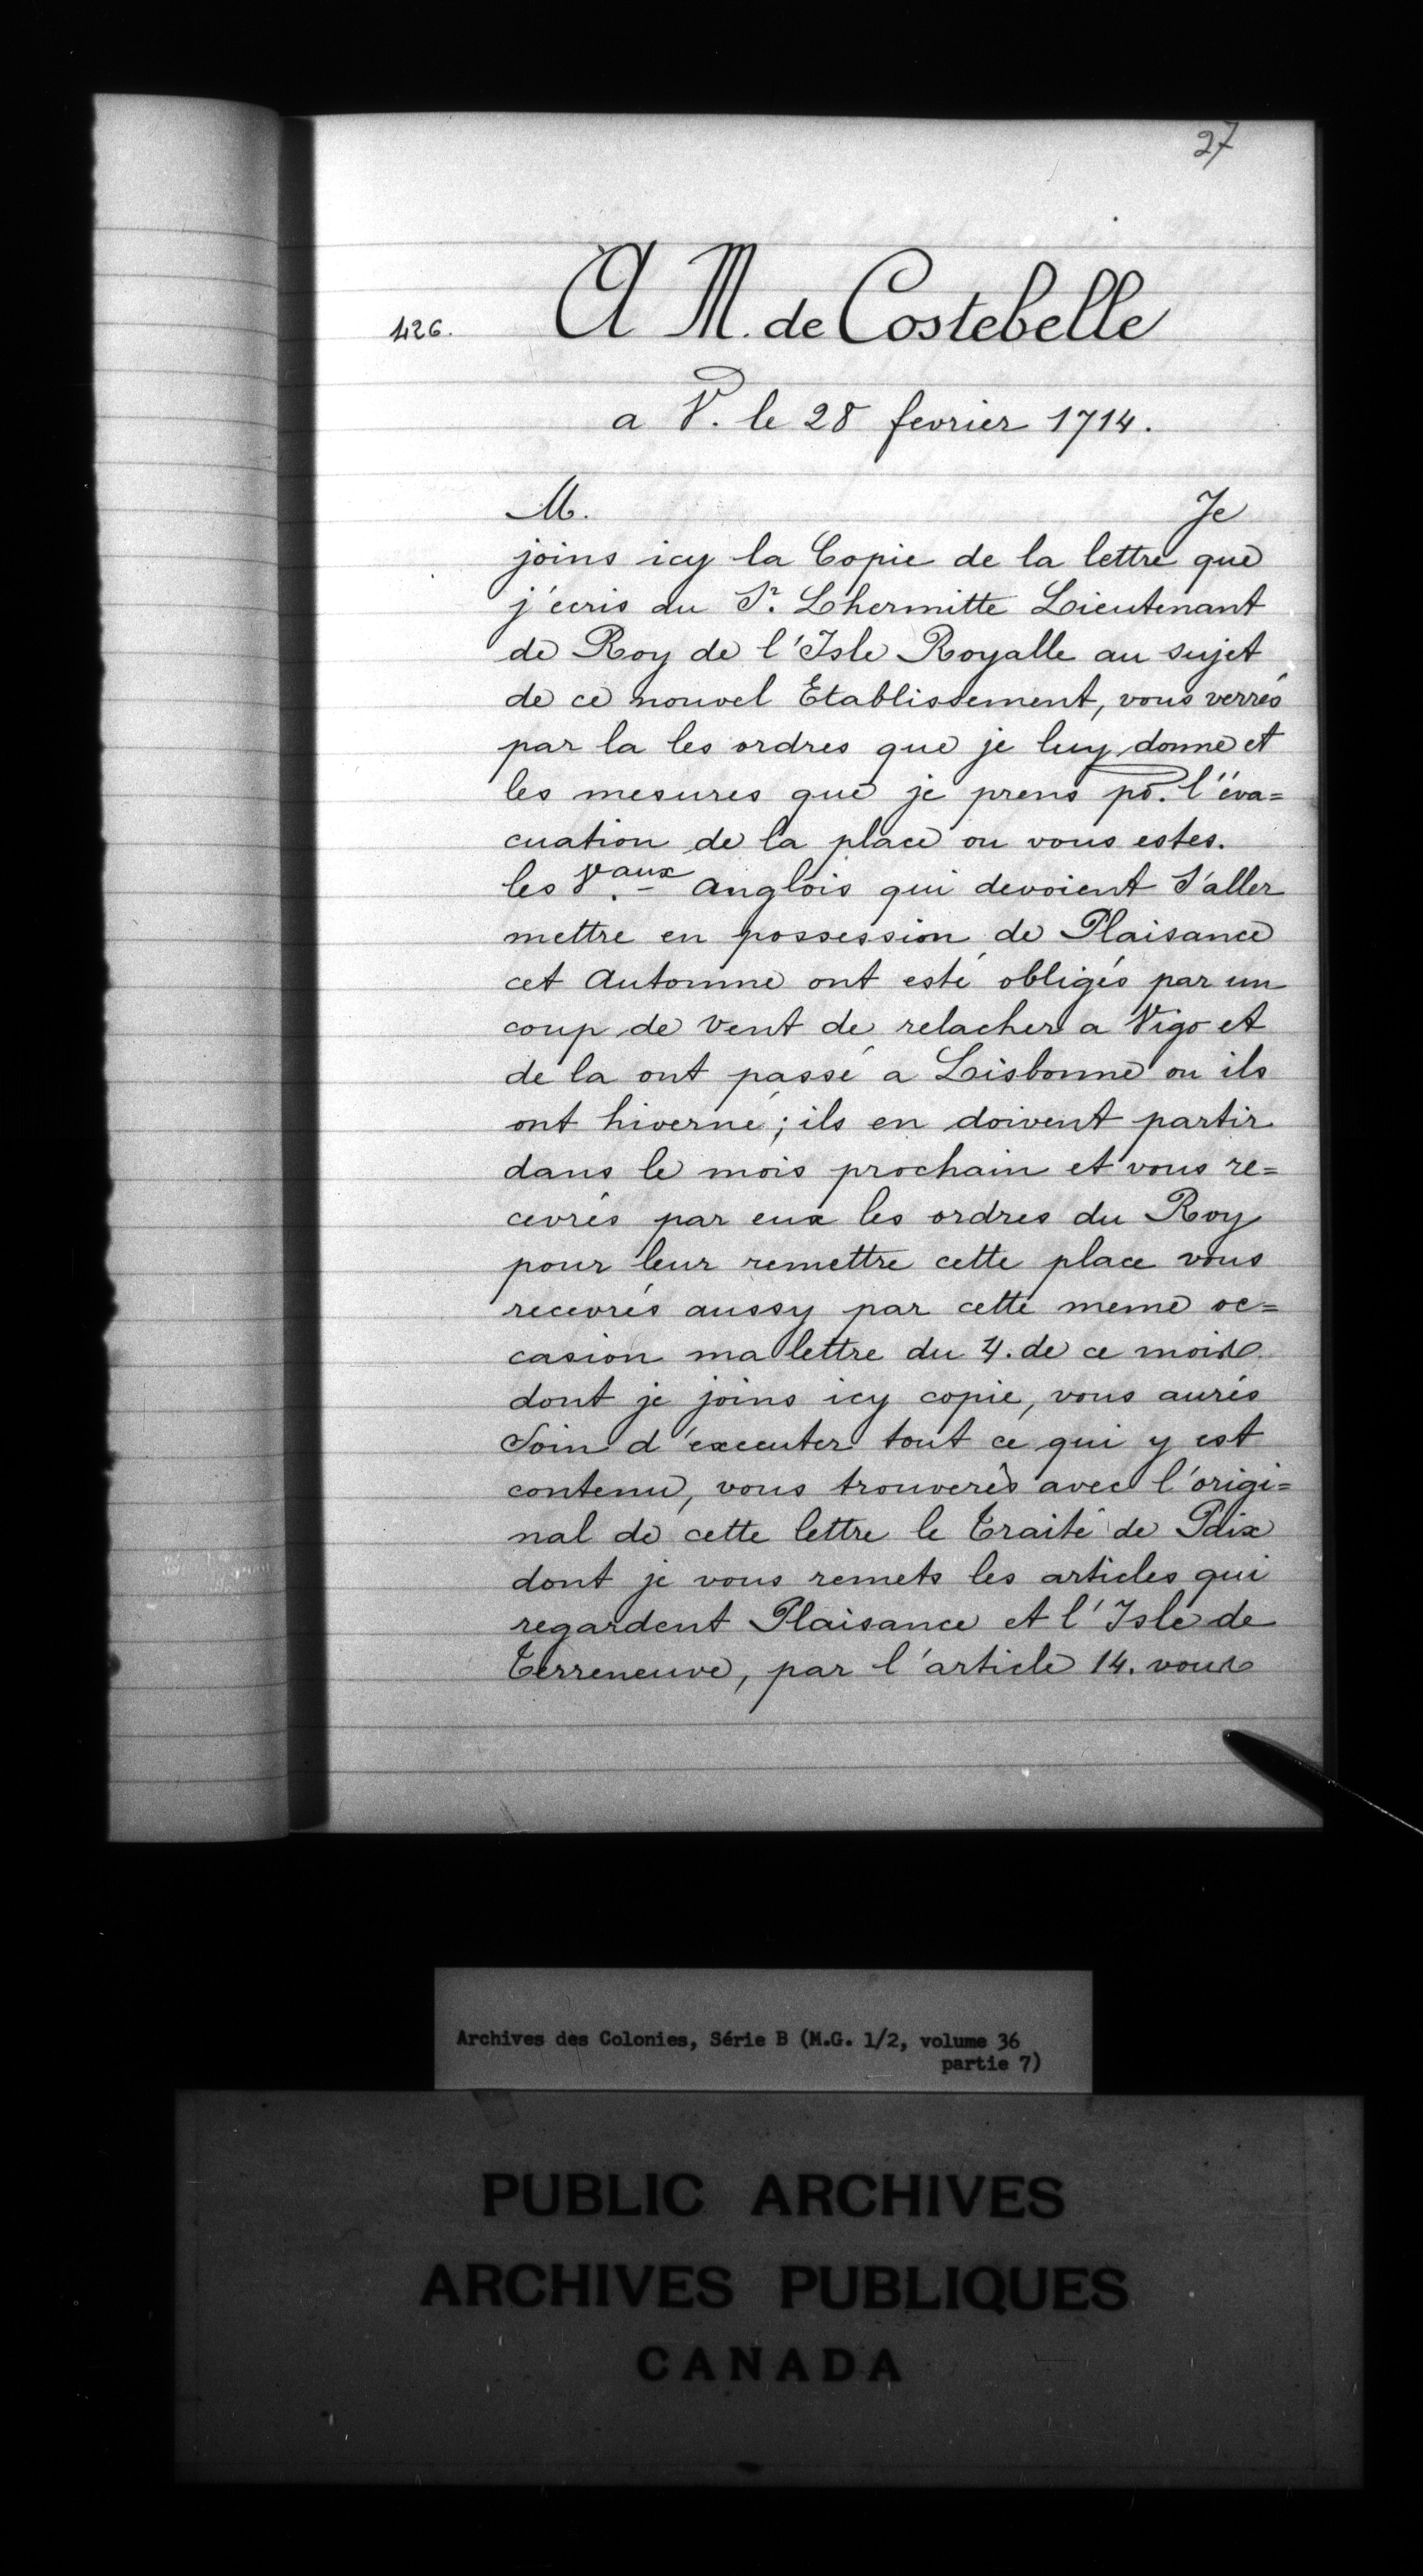 27
426. A M. de Costebelle
a V. le 28 fevrier 1714.
M. Je
joins icy la Copie de la lettre que
j'ecris au Sr. Lhermitte Lieutenant
de Roy de l'Isle Royalle au sujet
de ce nouvel Etablissement, vous verrés
par la les ordres que je luy donne et
les mesures que je prens po. l'éva=
cuation de la place ou vous estes.
les V.aux Anglois qui devoient S'aller
mettre en possession de Plaisance
cet Automne ont esté obligés par un
coup de Vent de relacher a Vigo et
de la ont passé a Lisbonne ou ils
ont hiverné; ils en doivent partir
dans le mois prochain et vous re=
cevrés par eux les ordres du Roy
pour leur remettre cette place vous
recevrés aussy par cette meme oc=
casion ma lettre du 4. de ce mois
dont je joins icy copie, vous aurés
Soin d'executer tout ce qui y est
contenu, vous trouverès avec l'origi=
nal de cette lettre le Traité de Paix
dont je vous remets les articles qui
regardent Plaisance et l'Isle de
Terreneuve, par l'article 14. vous
Archives des Colonies, Série B (M.G. 1/2, volume 36
partie 7)
PUBLIC ARCHIVES
ARCHIVES PUBLIQUES
CANADA